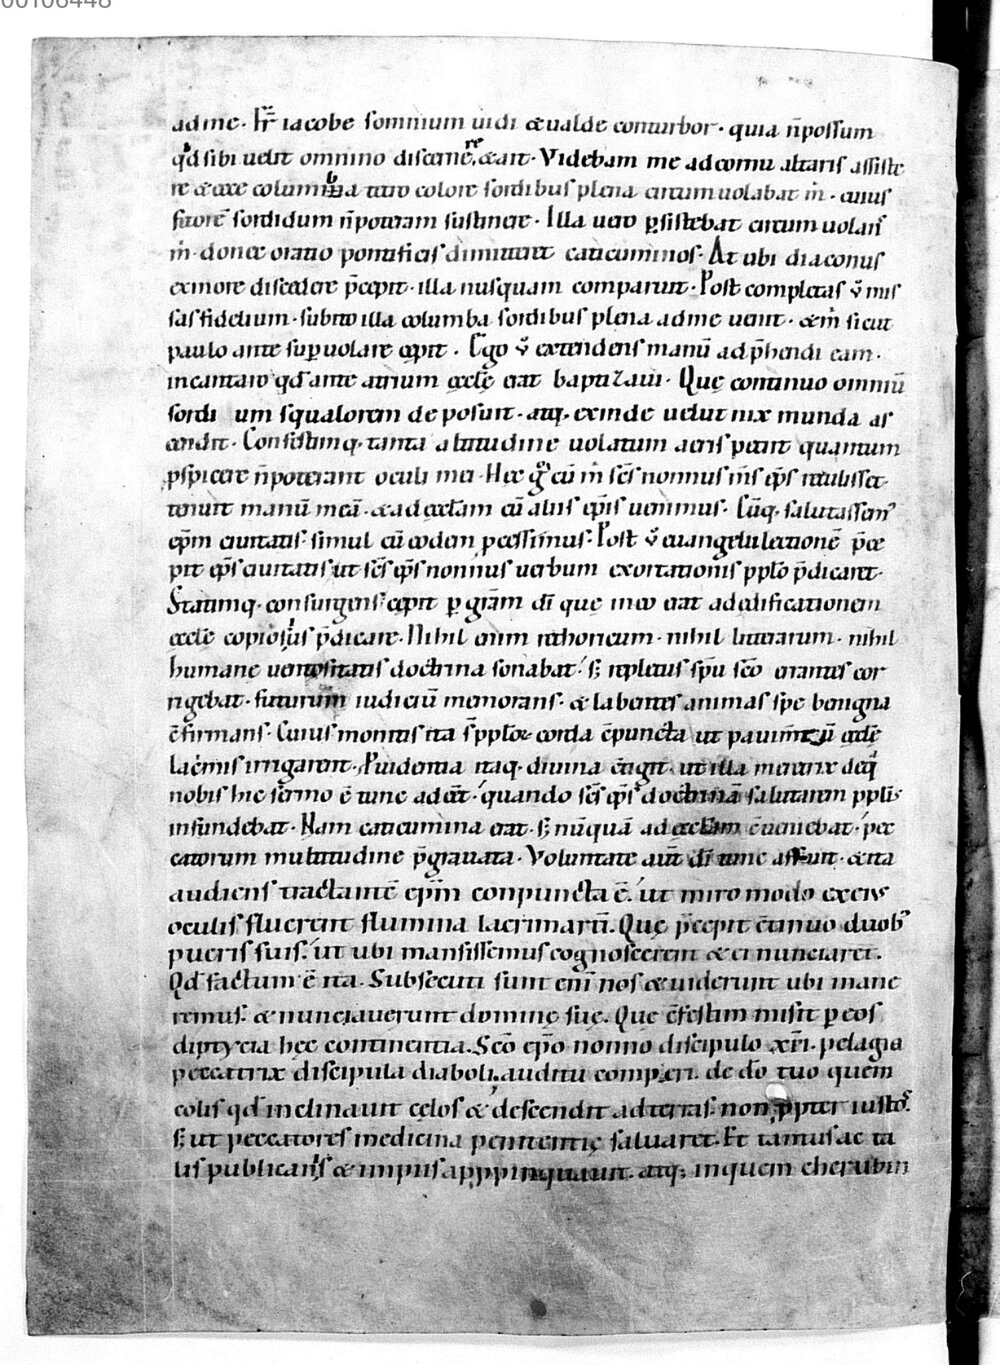 00106448
ad me· Fr̄ iacobe somnium uidi & ualde conturbor· quia n̄ possum
qd̓ sibi uelit omnino discernere· & ait· Videbam me ad cornu altaris assiste
re & ecce columba tetro colore sordibus plena circumuolabat m̄· cuius
fetorē sordidum n̄ poteram sustinere· Illa uero ꝑsistebat circum uolans
m̄· donec oratio pontificis dimitteret caticuminos· At ubi diaconus
ex more discedere p̄cepit· illa nusquam comparuit· Post completas ū mis
sas fidelium· subito illa columba sordibus plena ad me uenit· & m̄ sicut
paulo ante suꝑuolare cępit· Ego ū extendens manū adp̄hendi eam·
in cantaro qd̓ ante atrium ęcclę erat baptizaui· Quę continuo omniū
sordi um squalorem deposuit· atq· exinde uelut nix munda as
cendit· Confestimq· tanta altitudine uolatum aeris petiit quantum
ꝑspicere n̄ poterant oculi mei· Hec g̊ cū m̄ scs̄ nonnus m̄s ep̄s retulisset·
tenuit manū meā· & ad ęcclam cū aliis ep̄is uenimus· Cūq· salutassem̓
ep̄m ciuitatis· simul cū eodem ꝑcessimus· Post ū euangelii lectionē p̄ce
pit ep̄s ciuitatis· ut scs̄ ep̄s nonnus uerbum exortationis pplo p̄dicaret·
Statimq· consurgens cępit ꝑ gr̄am dī que in eo erat ad ędificationem
ęcclę copiosius p̄dicare· Nihil enim rethoricum· nihil litterarum· nihil
humane uentositatis doctrina sonabat· s; repletus spū scō errantes cor
rigebat· futurum iudiciū memorans· & labentes animas spe benigna
c̄firmans· Cuius monitis ita s̄ pploꝝ corda c̄puncta ut pauimtū ędę
lacrimis irrigarent· Puidentia itaq· diuina c̄tigit· ut illa meretrix de q̓
nobis hic sermo ē tunc adeēt· quando scs̄ ep̄s doctrinā salutarem pplis
infundebat· Nam caticumina erat· s; nūquā ad ęcclam c̄ueniebat· pec
catorum multitudine p̄grauata· Voluntate aut̄ dī tunc affuit· & ita
audiens tractantē ep̄m conpuncta ē· ut miro modo ex eius
oculis fluerent flumina lacrimarū· Quę p̄cepit c̄tinuo duob̓
pueris suis· ut ubi mansissemus cognoscerent & ei nunciarent·
Qd̓ factum ē ita· Subsecuti sunt enī nos & uiderunt ubi mane
remus· & nunciauerunt dominę suę· Que c̄festim misit ꝑ eos
diptycia hęc continentia· Scō ep̄o nonno discipulo xr̄i· pelagia
peccatrix discipula diaboli· auditu comperi· de dō tuo quem
colis qd̓ inclinauit cęlos & descendit ad terras· non ꝓpter iustos·
s; ut peccatores medicina penitentię saluaret· Et tamus ac ta
lis publicanis & impiis apppinquauit· atq; in quem cherubin